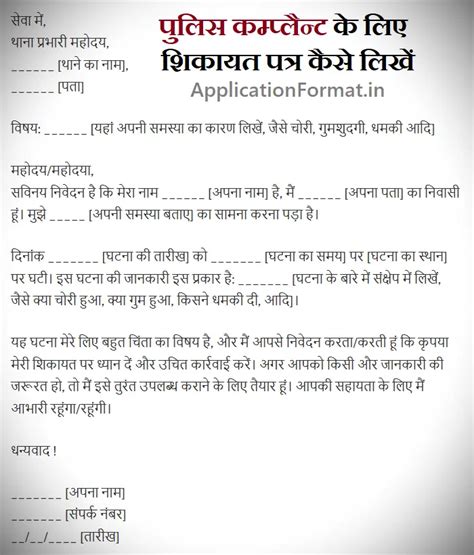 सेवा में,
थाना प्रभारी महोदय,
______ [थाने का नाम],
______ [पता]
पुलिस कम्प्लैन्ट के लिए
शिकायत पत्र कैसे लिखें
ApplicationFormat.in
विषय: ______ [यहां अपनी समस्या का कारण लिखें, जैसे चोरी, गुमशुदगी, धमकी आदि]
महोदय/महोदया,
सविनय निवेदन है कि मेरा नाम ______ [अपना नाम] है, मैं ______ [अपना पता] का निवासी
हूं। मुझे _____ [अपनी समस्या बताए] का सामना करना पड़ा है।
दिनांक _______ [घटना की तारीख] को _______ [घटना का समय] पर [घटना का स्थान]
पर घटी। इस घटना की जानकारी इस प्रकार है: _______ [घटना के बारे में संक्षेप में लिखें,
जैसे क्या चोरी हुआ, क्या गुम हुआ, किसने धमकी दी, आदि]।
यह घटना मेरे लिए बहुत चिंता का विषय है, और मैं आपसे निवेदन करता/करती हूं कि कृपया
मेरी शिकायत पर ध्यान दें और उचित कार्रवाई करें। अगर आपको किसी और जानकारी की
जरूरत हो, तो मैं इसे तुरंत उपलब्ध कराने के लिए तैयार हूं। आपकी सहायता के लिए मैं
आभारी रहूंगा/रहूंगी।
धन्यवाद !
_______ [अपना नाम]
_______ [संपर्क नंबर]
__/__/____ [तारीख]